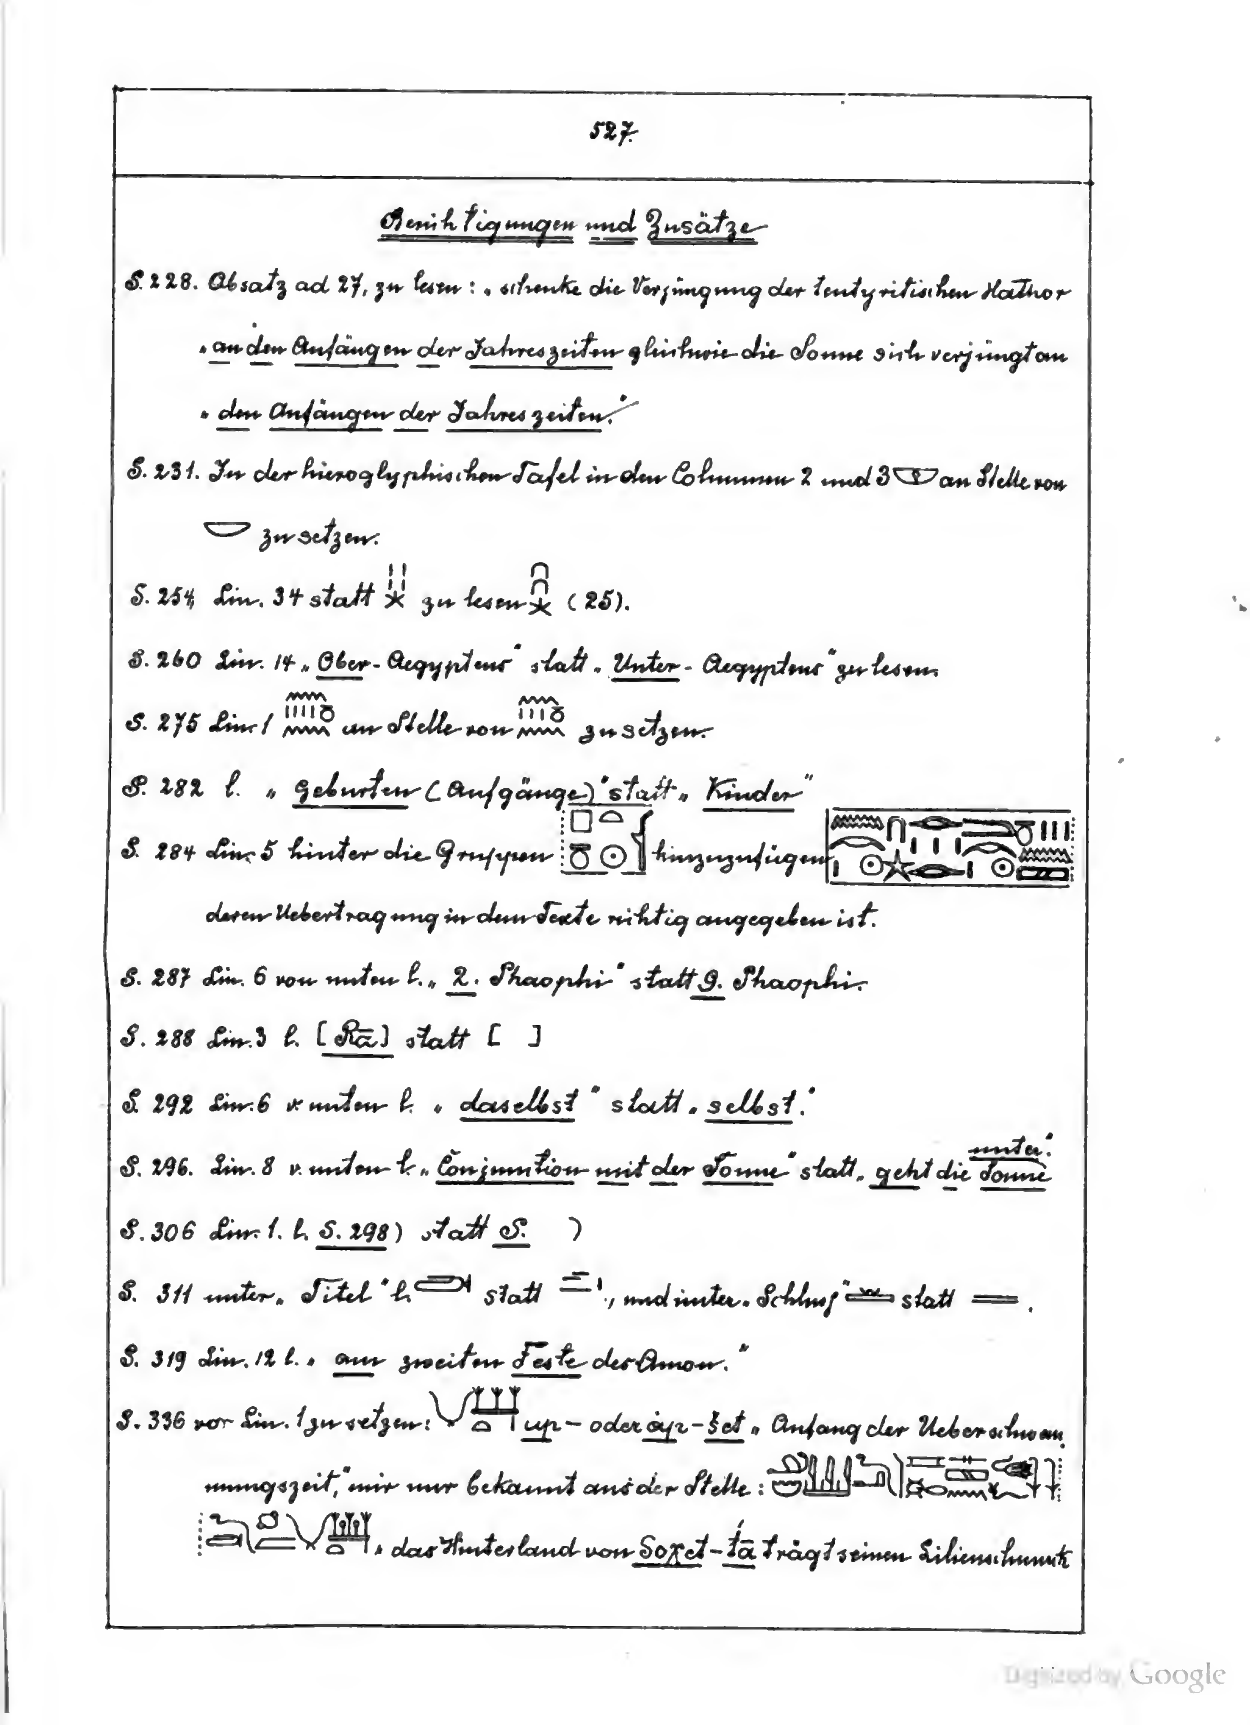 527.
Berichtigungen und Zusätze
S. 228. Absatz ad 27, zu lesen: „schenke die Verjüngung der tentyritischen Hathor
„an den Anfängen der Jahreszeiten gleichwie die Sonne sich verjüngt an
„den Anfängen der Jahreszeiten."
S. 231. In der hieroglyphischen Tafel in den Columnen 2 und 3 an Stelle von
zu setzen.
S. 254, Lin. 34 statt zu lesen (25).
S. 260 Lin. 14 „Ober-Aegyptens" statt „Unter-Aegyptens" zu lesen.
S. 275 Lin. 1 an Stelle von zu setzen.
S. 282 l. „Geburten (Aufgänge)" statt „Kinder"
S. 284 Lin. 5 hinter die Gruppen hinzuzufügen
deren Uebertragung in dem Texte richtig angegeben ist.
S. 287 Lin. 6 von unten l. „2. Phaophi" statt 9. Phaophi.
S. 288 Lin. 3 l. [Rā] statt [ ]
S. 292 Lin. 6 v. unten l. „daselbst" statt „selbst."
S. 296. Lin. 8 v. unten l. „Conjunction mit der Sonne" statt „geht die Sonne unter."
S. 306 Lin. 1. l. S. 298) statt S. )
S. 311 unter „Titel" l. statt , und unter „Schluss" statt .
S. 319 Lin. 12 l. „am zweiten Feste des Amon."
S. 336 vor Lin. 1 zu setzen: up- oder āp-šet „Anfang der Ueberschwem
mungszeit," mir nur bekannt aus der Stelle:
„das Hinterland von Soχet-tā trägt seinen Lilienschmuck
Digitized by Google